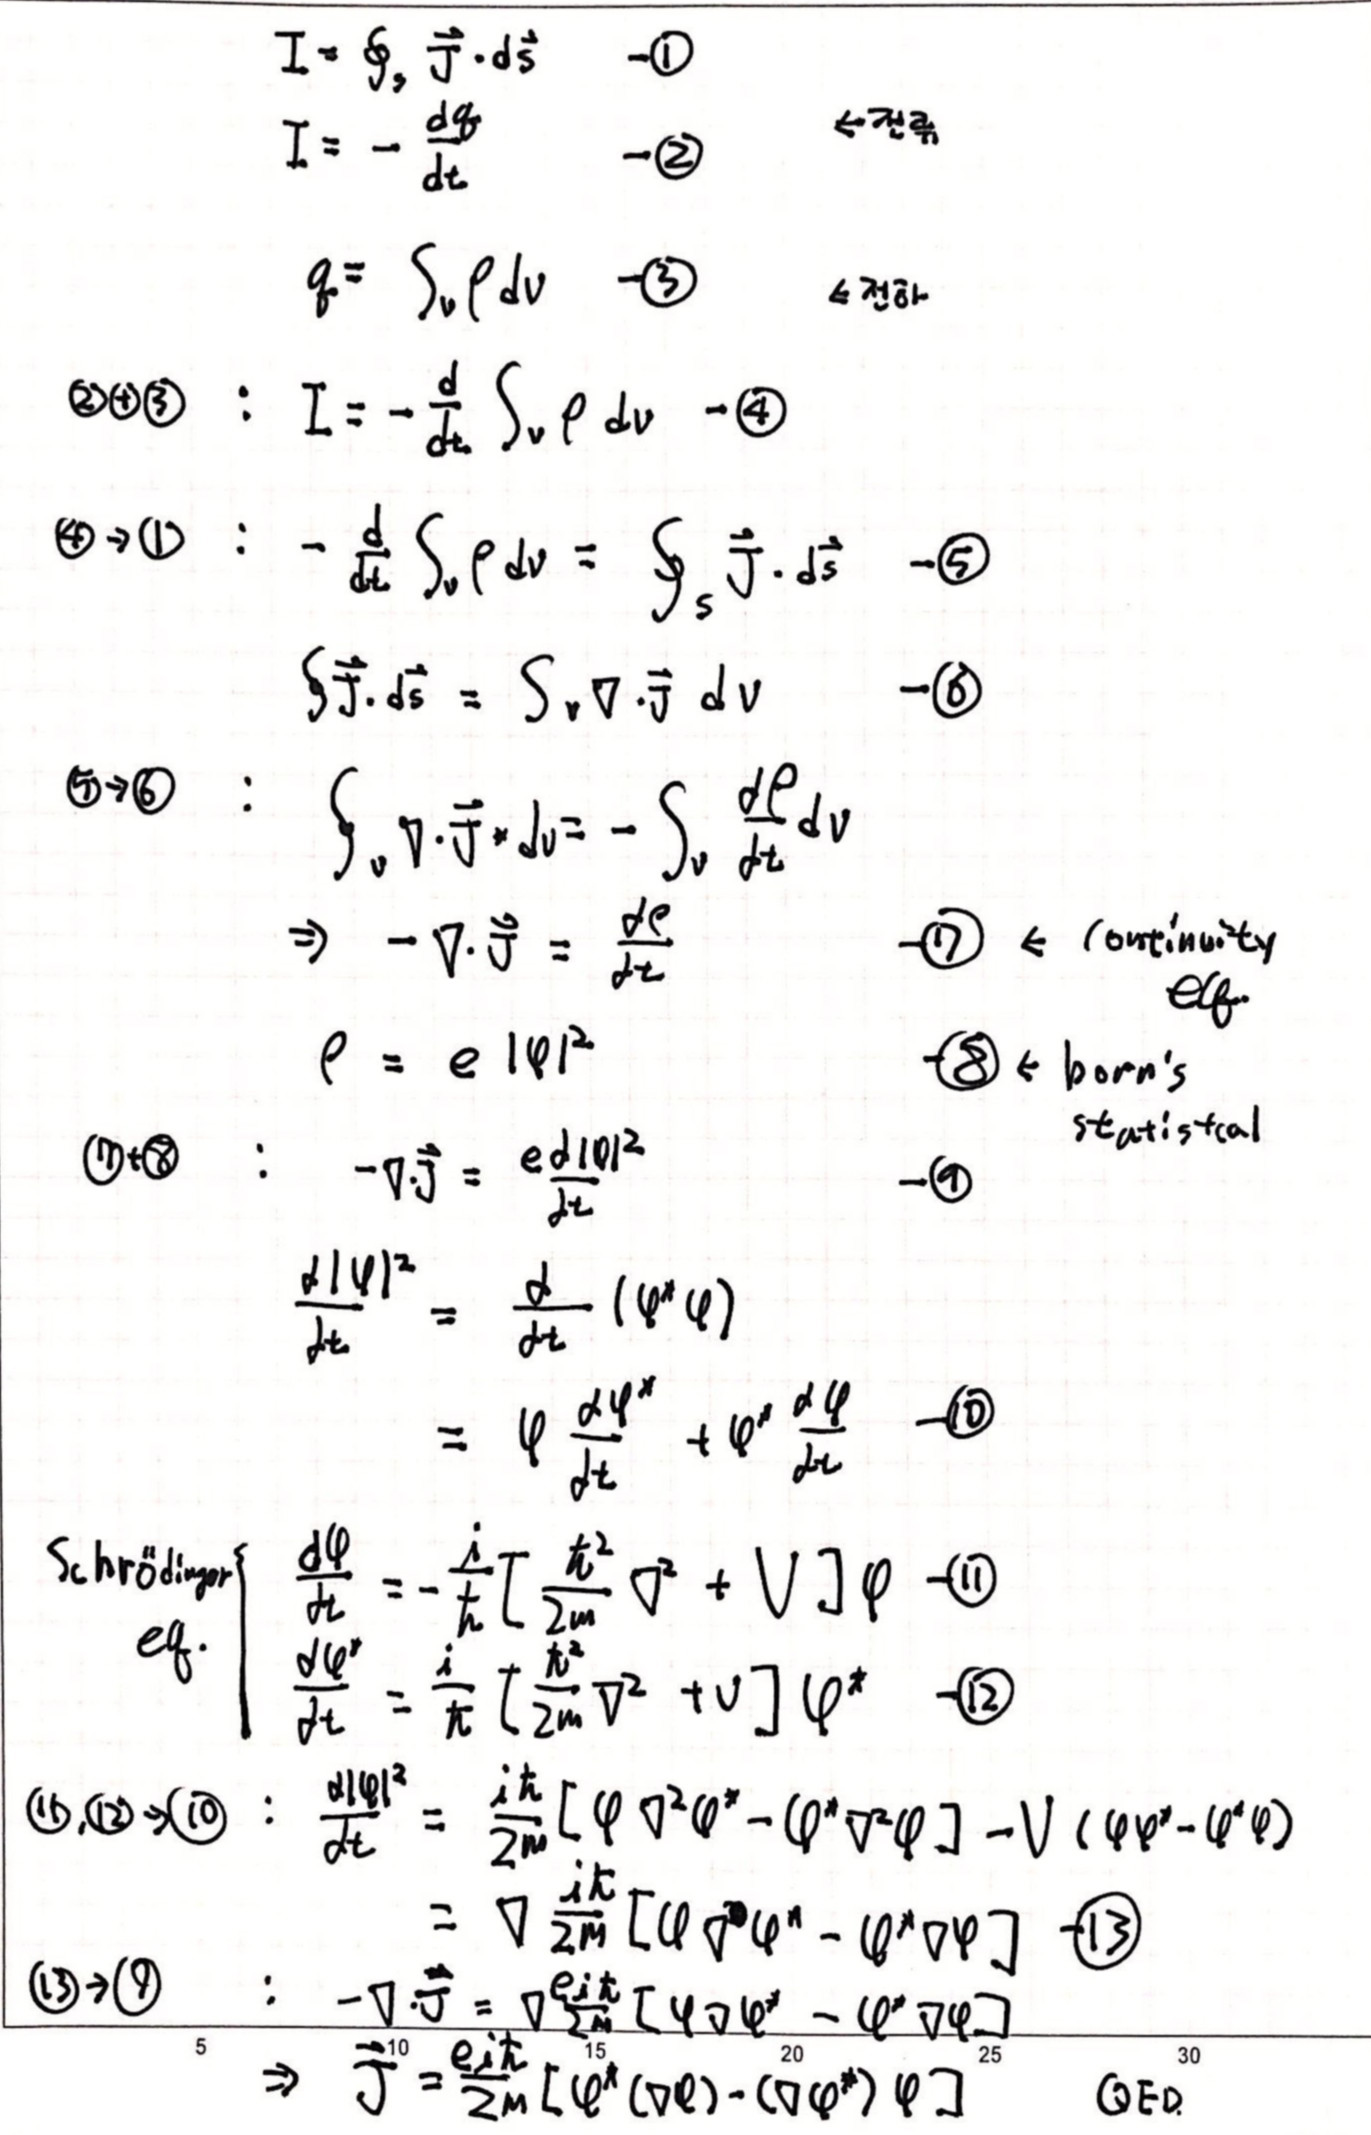 I = ∮ₛ J⃗·ds⃗ -①
I = - dq/dt -② ← 전류
q = ∫ᵥ ρ dv -③ ← 전하
②+③ : I = - d/dt ∫ᵥ ρ dv -④
④→① : - d/dt ∫ᵥ ρ dv = ∮ₛ J⃗·ds⃗ -⑤
∮ J⃗·ds⃗ = ∫ᵥ ∇·J⃗ dv -⑥
⑤→⑥ : ∫ᵥ ∇·J⃗ * dv = - ∫ᵥ dρ/dt dv
⇒ - ∇·J⃗ = dρ/dt -⑦ ← Continuity
eq.
ρ = e |φ|² -⑧ ← born's
statistcal
⑦+⑧ : -∇·J⃗ = e d|φ|²/dt -⑨
d|φ|²/dt = d/dt (φ*φ)
= φ dφ*/dt + φ* dφ/dt -⑩
Schrödinger eq. { dφ/dt = - i/ħ [ ħ²/2m ∇² + V ] φ -⑪
dφ*/dt = i/ħ [ ħ²/2m ∇² + V ] φ* -⑫
⑪,⑫→⑩ : d|φ|²/dt = iħ/2m [ φ∇²φ* - φ*∇²φ ] - V (φφ* - φ*φ)
= ∇ iħ/2m [ φ∇φ* - φ*∇φ ] -⑬
⑬→⑨ : -∇·J⃗ = ∇ eiħ/2m [ φ∇φ* - φ*∇φ ]
5 10 15 20 25 30
⇒ J⃗ = eiħ/2m [ φ*(∇φ) - (∇φ*) φ ] QED.